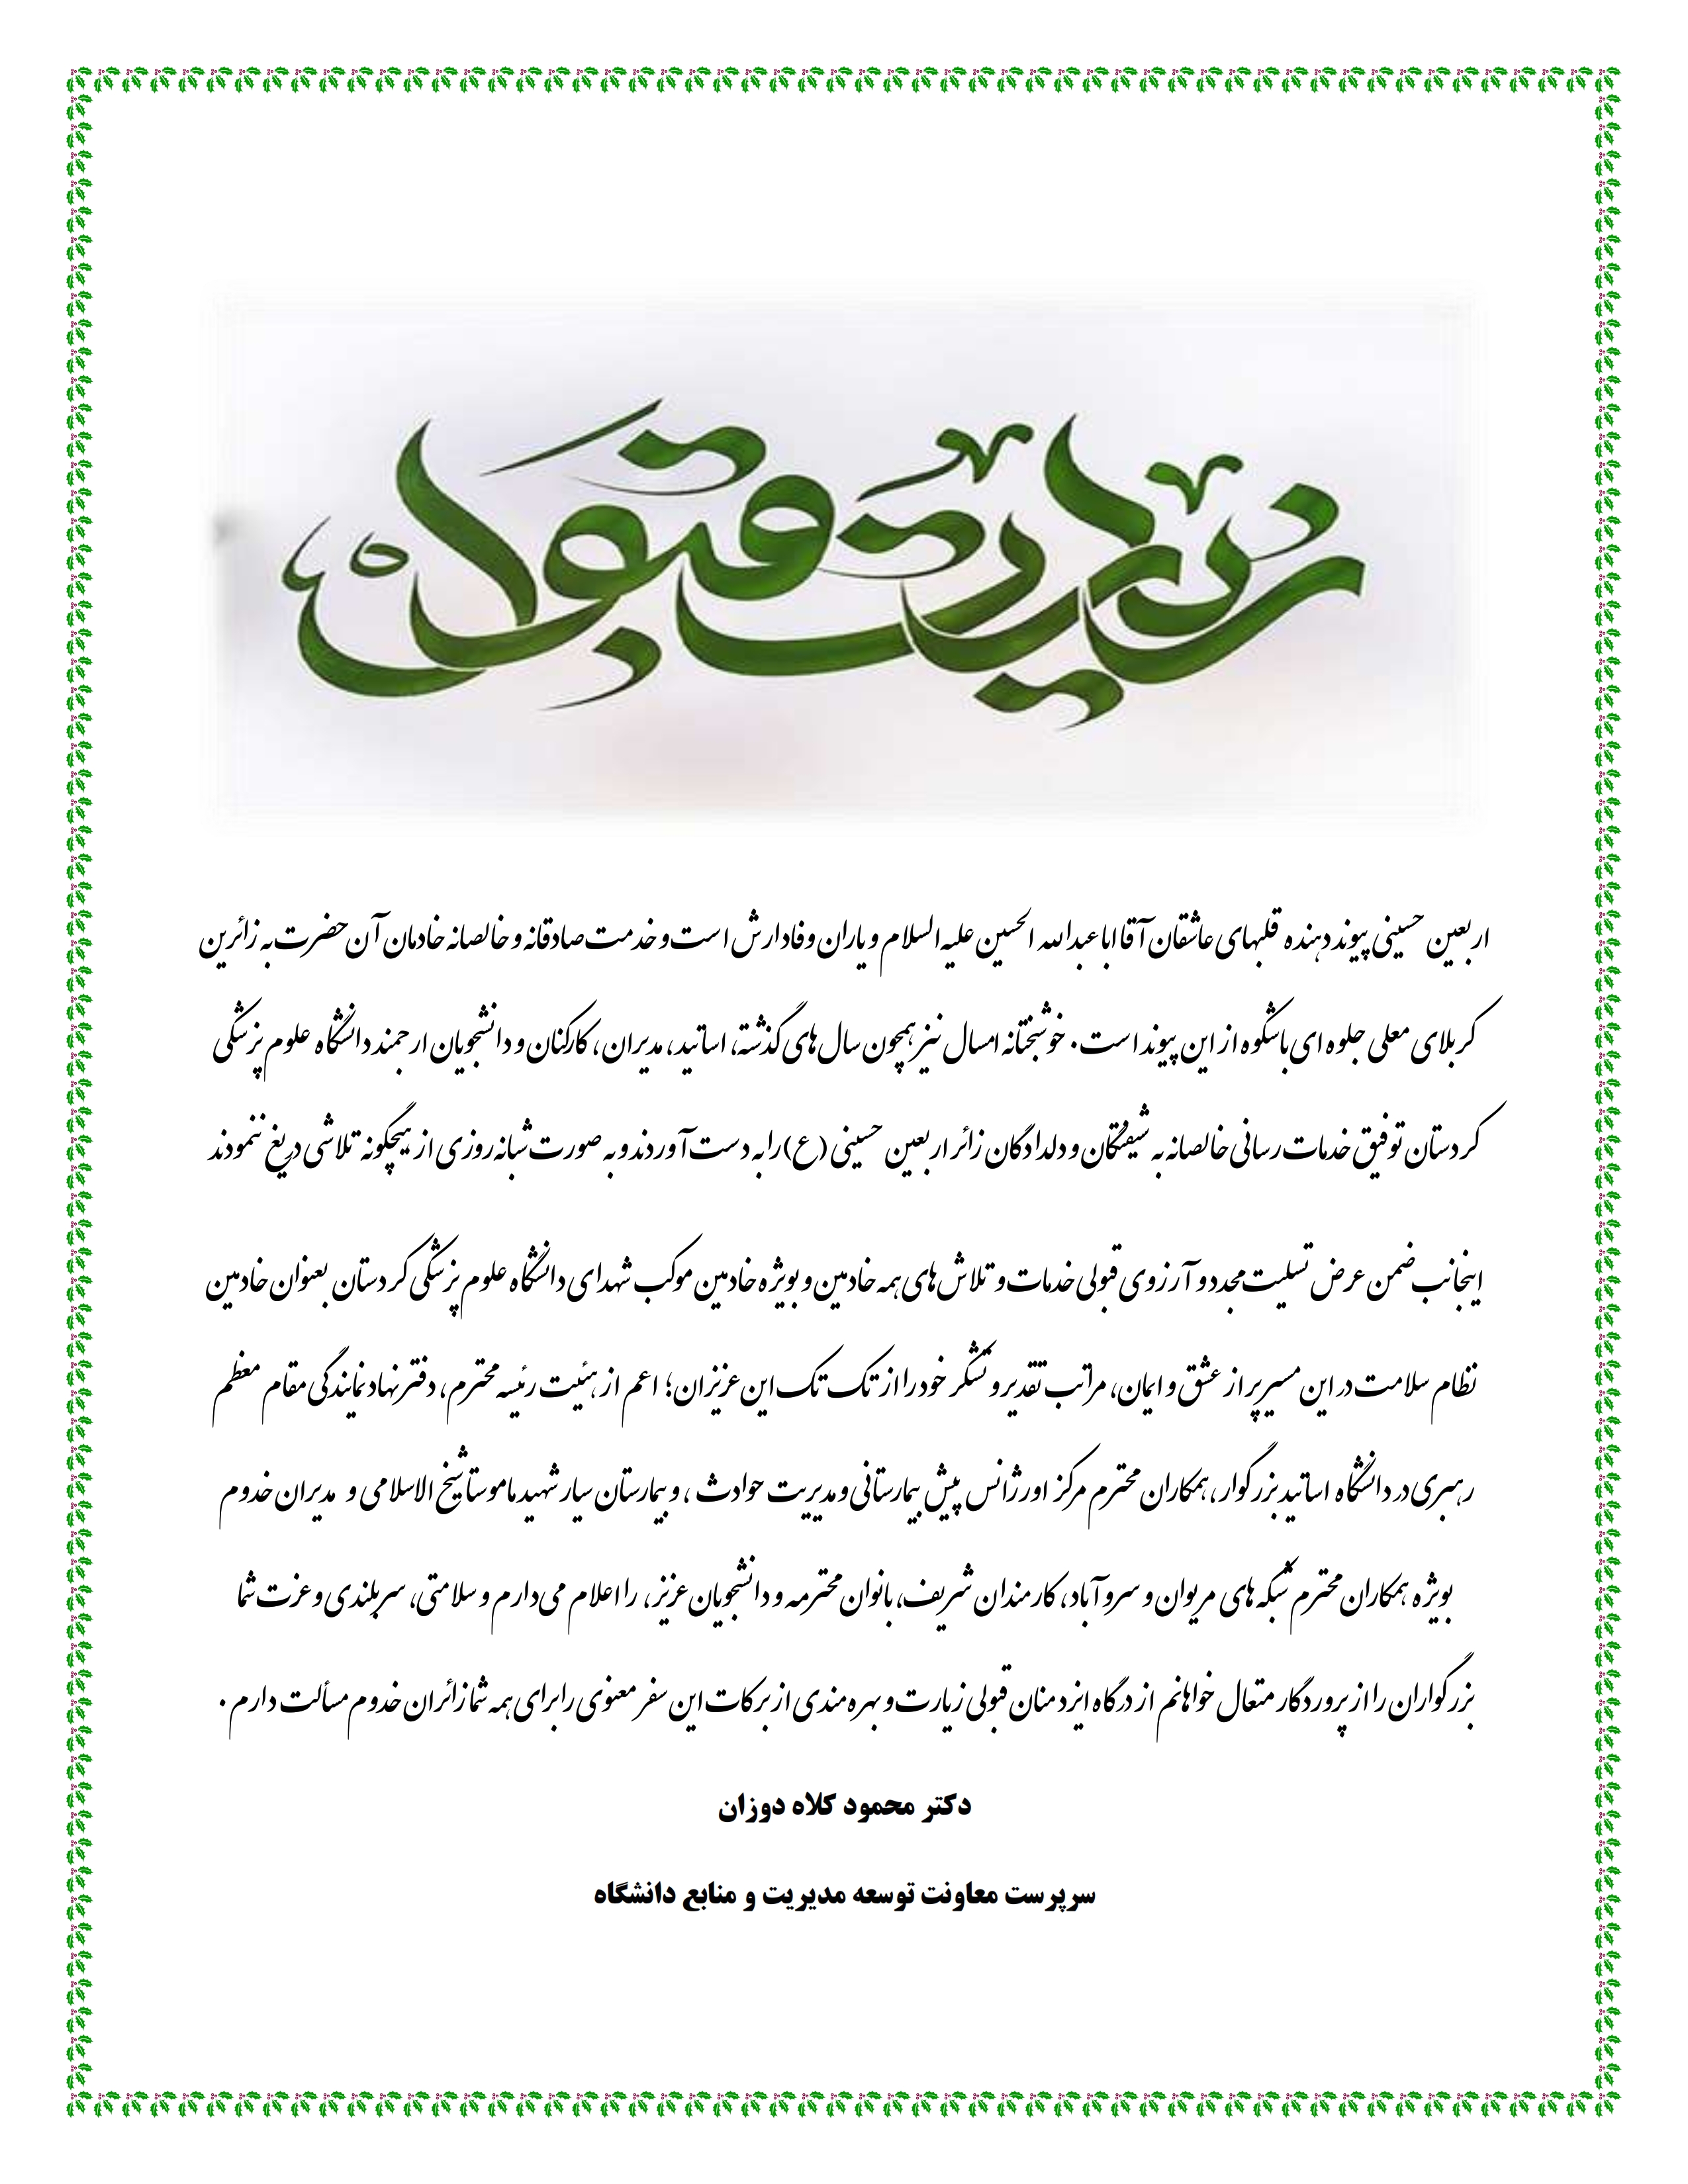 زیارت قبول
اربعین حسینی پیوند دهنده قلبهای عاشقان آقا اباعبدالله الحسین علیه السلام و یاران وفادارش است و خدمت صادقانه و خالصانه خادمان آن حضرت به زائرین
کربلای معلی جلوه ای باشکوه از این پیوند است. خوشبختانه امسال نیز همچون سال های گذشته، اساتید، مدیران، کارکنان و دانشجویان ارجمند دانشگاه علوم پزشکی
کردستان توفیق خدمات رسانی خالصانه به شیفتگان و دلدادگان زائر اربعین حسینی (ع) را به دست آوردند و به صورت شبانه روزی از هیچگونه تلاشی دریغ ننمودند
اینجانب ضمن عرض تسلیت مجدد و آرزوی قبولی خدمات و تلاش های همه خادمین و بویژه خادمین موکب شهدای دانشگاه علوم پزشکی کردستان بعنوان خادمین
نظام سلامت در این مسیر پر از عشق و ایمان، مراتب تقدیر و تشکر خود را از تک تک این عزیزان؛ اعم از هئیت رئیسه محترم، دفتر نهاد نمایندگی مقام معظم
رهبری در دانشگاه اساتید بزرگوار، همکاران محترم مرکز اورژانس پیش بیمارستانی و مدیریت حوادث ، و بیمارستان سیار شهید ماموستا شیخ الاسلامی و مدیران خدوم
بویژه همکاران محترم شبکه های مریوان و سروآباد، کارمندان شریف، بانوان محترمه و دانشجویان عزیز، را اعلام می دارم و سلامتی، سربلندی و عزت شما
بزرگواران را از پروردگار متعال خواهانم از درگاه ایزد منان قبولی زیارت و بهره مندی از برکات این سفر معنوی را برای همه شما زائران خدوم مسألت دارم .
دکتر محمود کلاه دوزان
سرپرست معاونت توسعه مدیریت و منابع دانشگاه